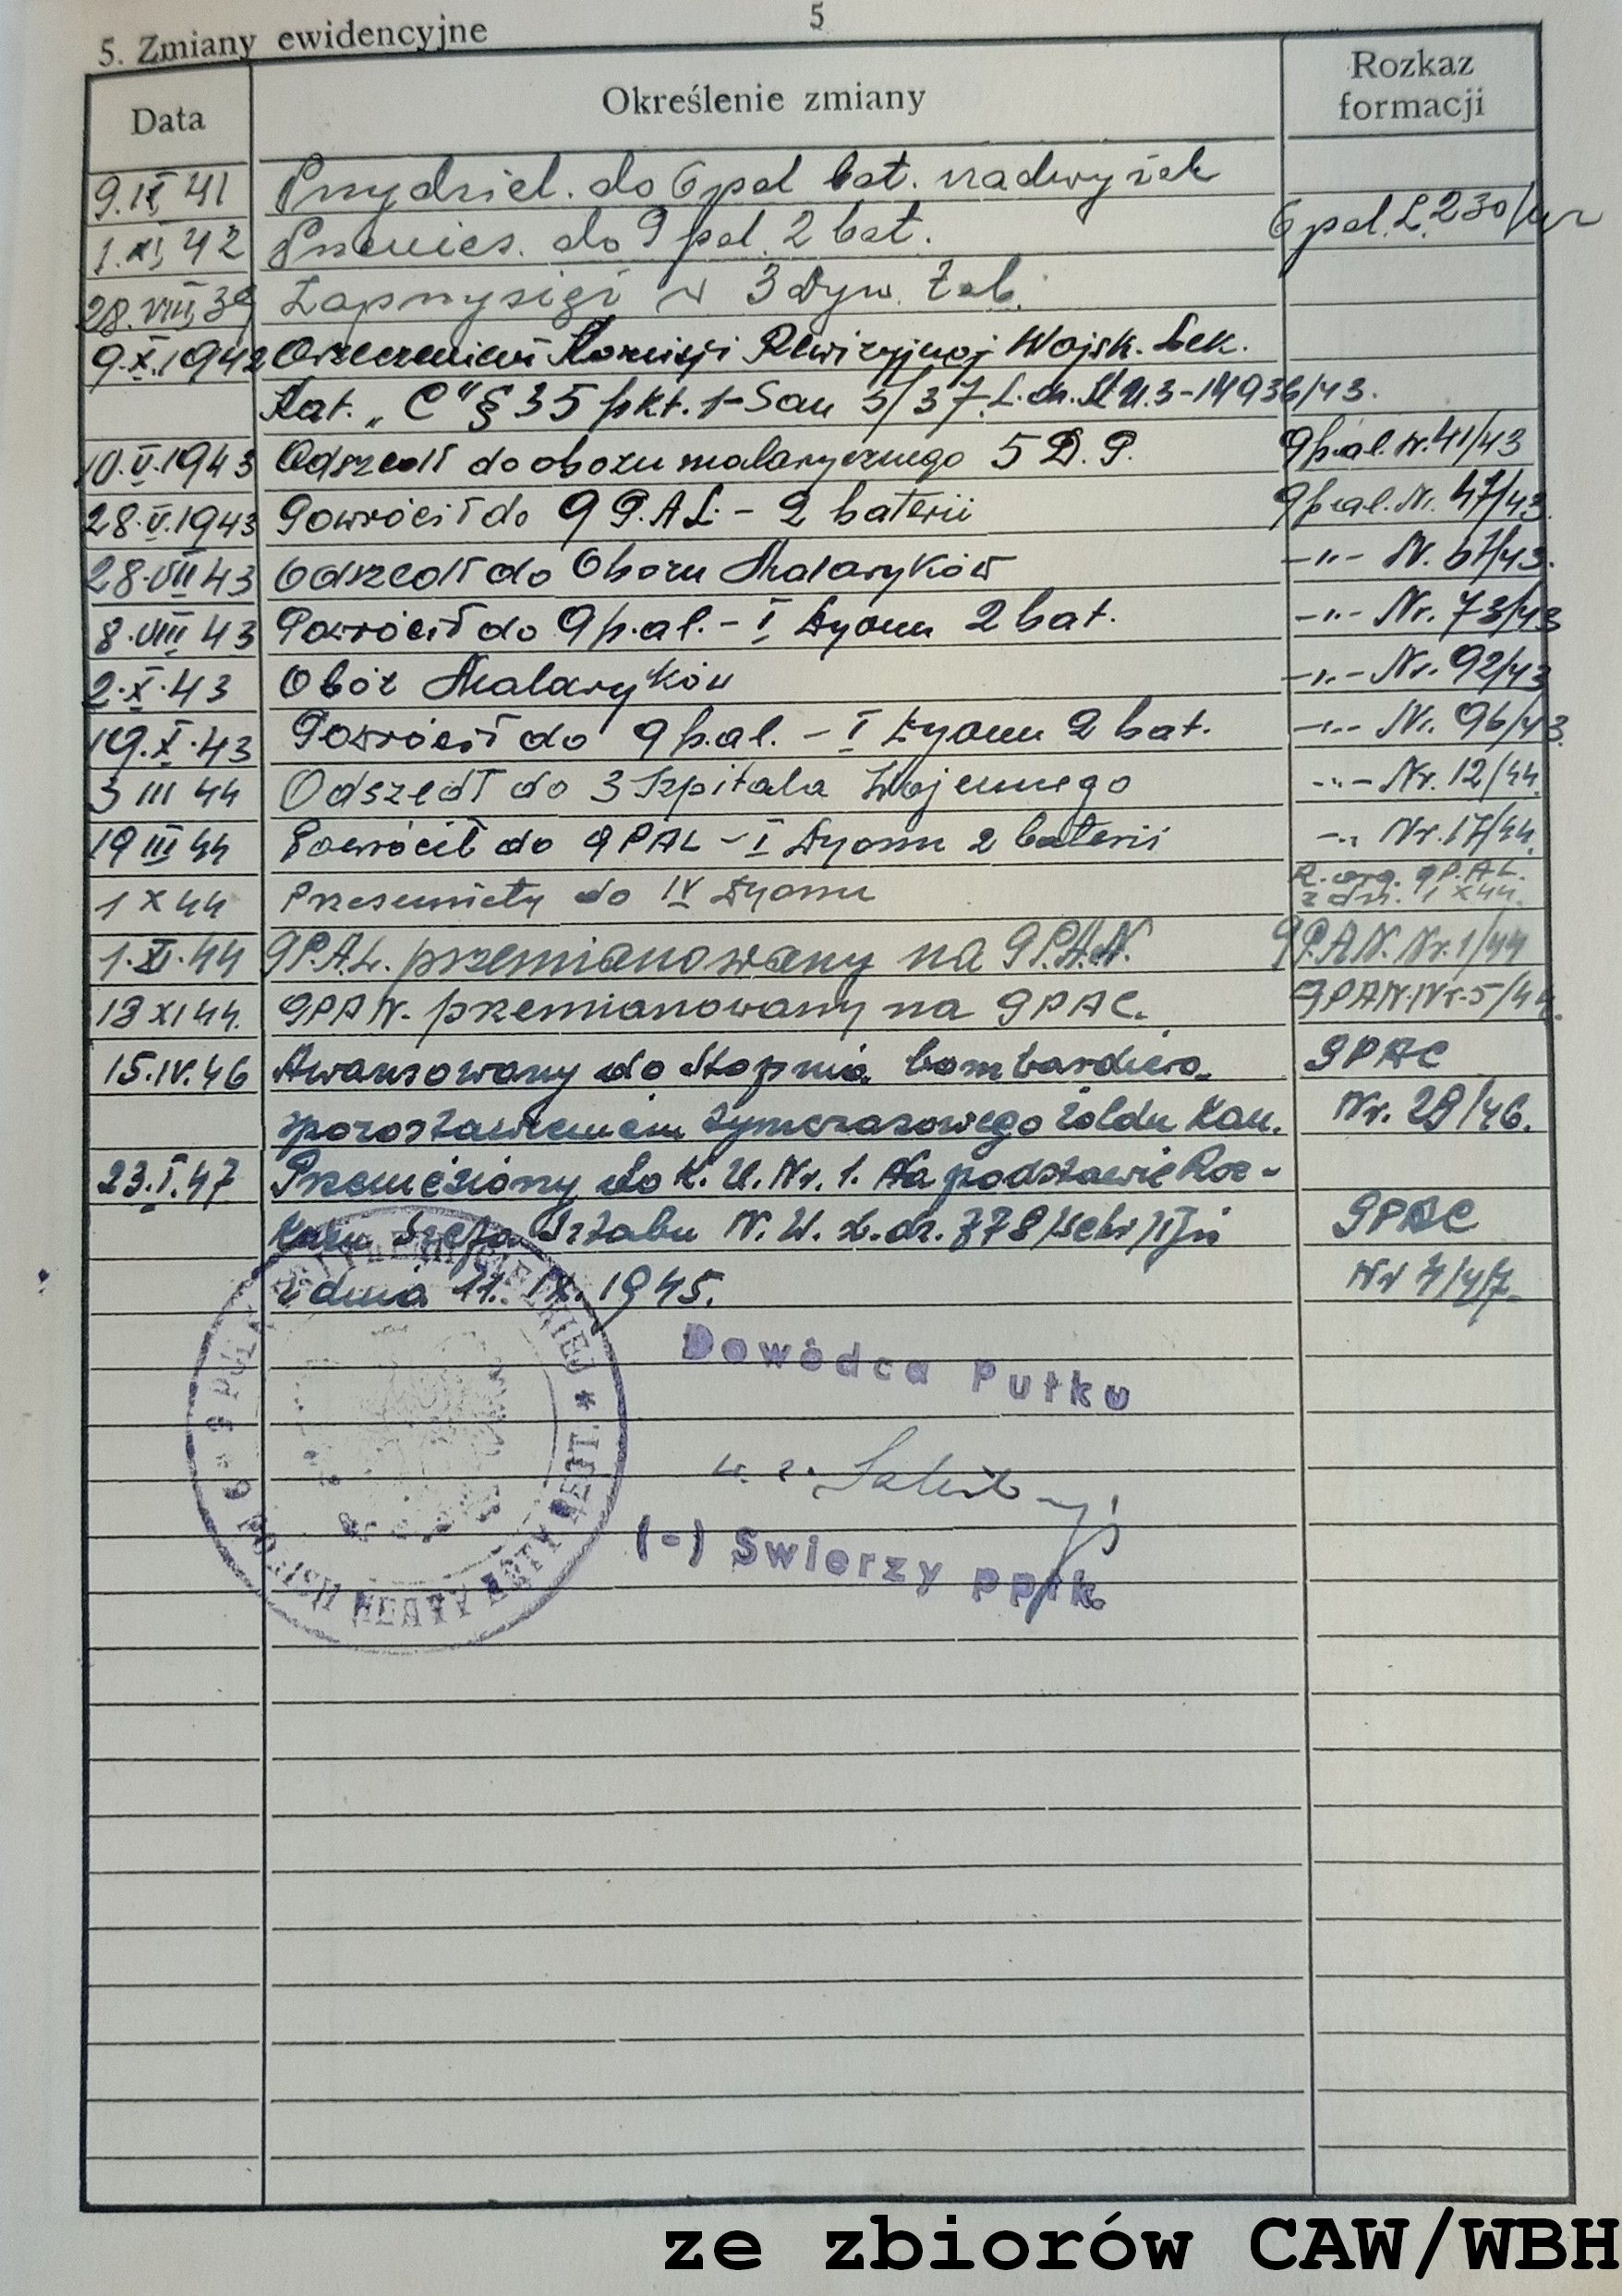 5
5. Zmiany ewidencyjne
Data Określenie zmiany Rozkaz formacji
9.IX 41 Przydziel. do 6 pal bat. nadwyżek
1.XI, 42 Przenies. do 9 pal 2 bat. 6 pal. L. 230/
28.VIII,39 Zaprzysiągł w 3 Dyw. Żab.
9.X.1942 Orzeczeniem Komisji Rewizyjnej Wojsk. Lek.
Kat. „C" § 35 pkt. 1-San 5/37 L.dz. 3-14936/43.
10.V.1943 Odszedł do obozu malarycznego 5 D.P. 9 p.al. N. 41/43
28.V.1943 Powrócił do 9 P.A.L. - 2 baterii 9 p.al. Nr. 47/43.
28.VII 43 Odszedł do Obozu Malaryków -"- N. 67/43.
8.VIII 43 Powrócił do 9 p.al. - I Dyonu 2 bat. -"- Nr. 73/43
2.X.43 Obóz Malaryków -"- Nr. 92/43
19.X.43 Powrócił do 9 p.al. - I Dyonu 2 bat. -"- Nr. 96/43.
3 III 44 Odszedł do 3 Szpitala Wojennego -"- Nr. 12/44.
19 III 44 Powrócił do 9 PAL - I Dyonu 2 baterii -"- Nr. 17/44.
1 X 44 Przesunięty do IV Dyonu R. org. 9 P.A.L. z dn. 1 X 44.
1.XI.44 9 P.A.L. przemianowany na 9 P.A.N. 9 P.A.N. Nr. 1/44
13 XI 44. 9 PAN. przemianowany na 9 PAC. 9 PAN. Nr. 5/44.
15.IV.46 Awansowany do stopnia bombardiera 9 PAC
z pozostawieniem tymczasowego żołdu kan. Nr. 29/46.
23.I.47 Przeniesiony do K.U. Nr. 1. Na podstawie Roz-
kazu Szefa Sztabu N.W. L.dz. 778/ 9 PAC
z dnia 11. IX. 1945. Nr 4/47.
Dowódca Pułku
(-) Swierzy ppłk.
9 PUŁK ARTYLERII CIĘŻKIEJ * 9 POLISH HEAVY ARTY REGT. *
ze zbiorów CAW/WBH